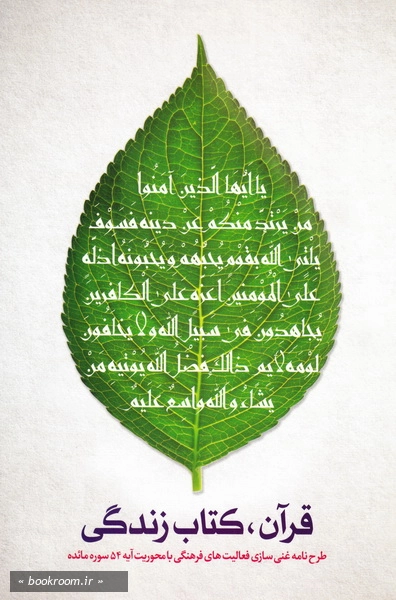 يا أيها الّذين آمنوا
من يرتدّ منكم عن دينه فسوف
يأتي الله بقوم يحبّهم و يحبّونه أذلّة
على المؤمنين أعزة على الكافرين
يجاهدون في سبيل الله و لا يخافون
لومة لايم ذالك فضل الله يؤتيه من
يشاء و الله واسع عليم
قرآن، کتاب زندگی
طرح نامه غنی سازی فعالیت های فرهنگی با محوریت آیه ۵۴ سوره مائده
« bookroom.ir »